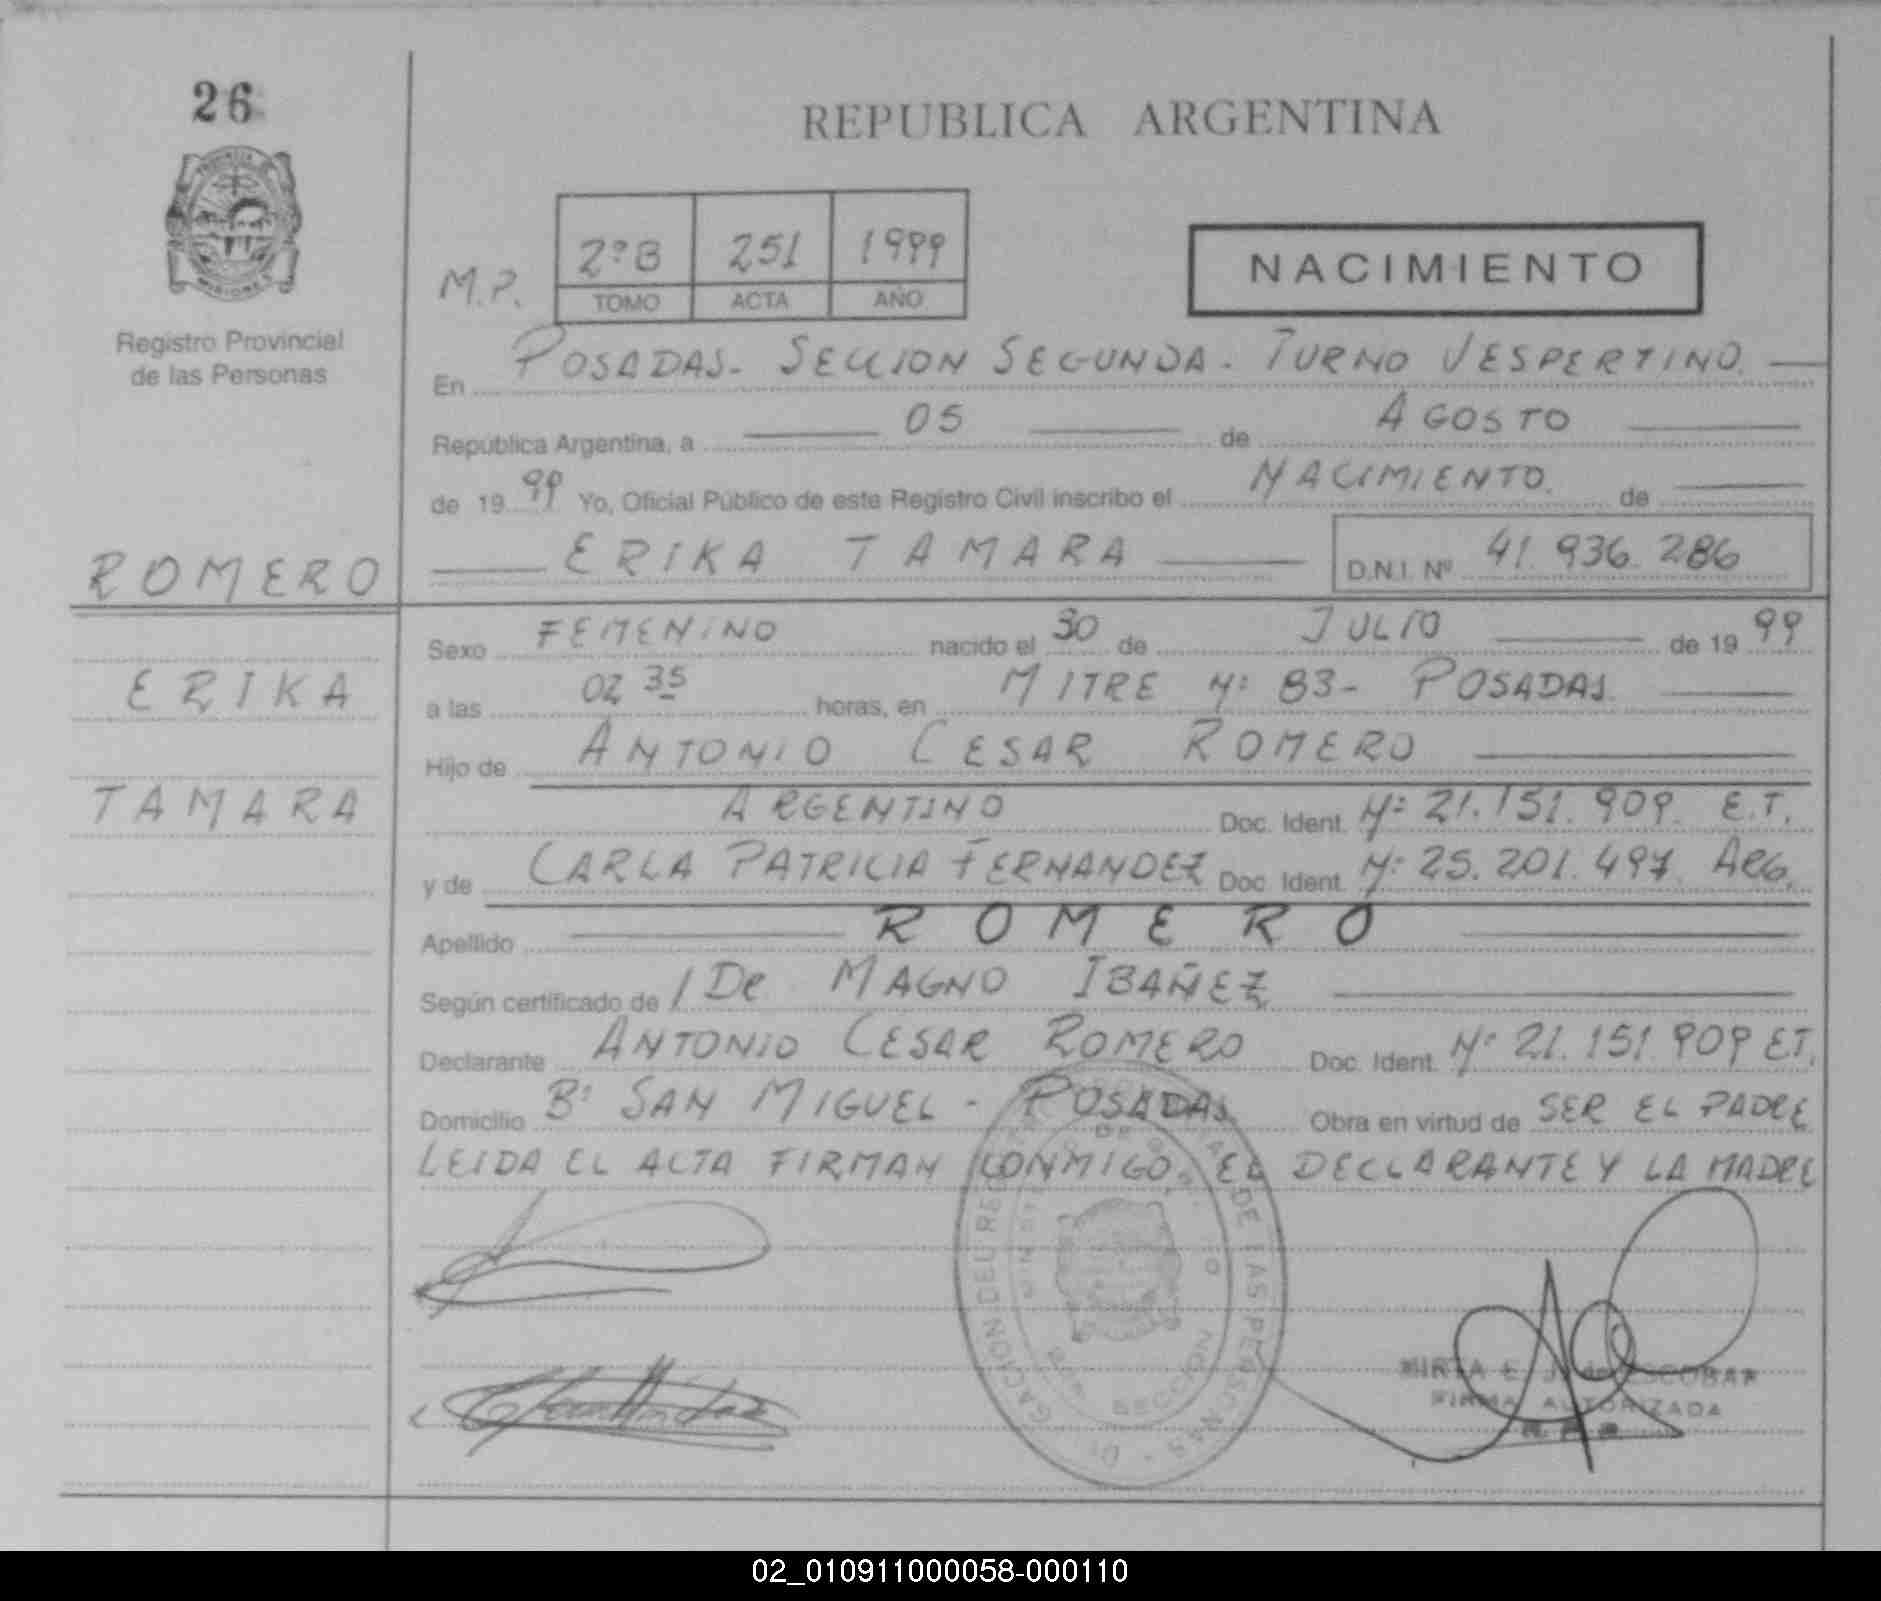 26
REPUBLICA ARGENTINA
PROVINCIA DE
MISIONES
Registro Provincial
de las Personas
M.P.
2ºB 251 1999
TOMO ACTA AÑO
NACIMIENTO
En POSADAS - SECCION SEGUNDA - TURNO VESPERTINO.
República Argentina, a 05 de AGOSTO
de 19 99 Yo, Oficial Público de este Registro Civil inscribo el NACIMIENTO. de
ERIKA TAMARA D.N.I. Nº 41.936.286
ROMERO
ERIKA
TAMARA
Sexo FEMENINO nacido el 30 de JULIO de 19 99
a las 02 35 horas, en MITRE Nº 83 - POSADAS.
Hijo de ANTONIO CESAR ROMERO
ARGENTINO Doc. Ident. Nº 21.151.909. E.T.
y de CARLA PATRICIA FERNANDEZ Doc. Ident. Nº 25.201.497. ARG.
Apellido ROMERO
Según certificado de / De MAGNO IBAÑEZ
Declarante ANTONIO CESAR ROMERO Doc. Ident. Nº 21.151.909 E.T.
Domicilio Bº SAN MIGUEL - POSADAS. Obra en virtud de SER EL PADRE
LEIDA EL ACTA FIRMAN CONMIGO, EL DECLARANTE Y LA MADRE
DE LAS PERSONAS
SECCION
MIRTA E. J. de ESCOBAR
FIRMA AUTORIZADA
02_010911000058-000110